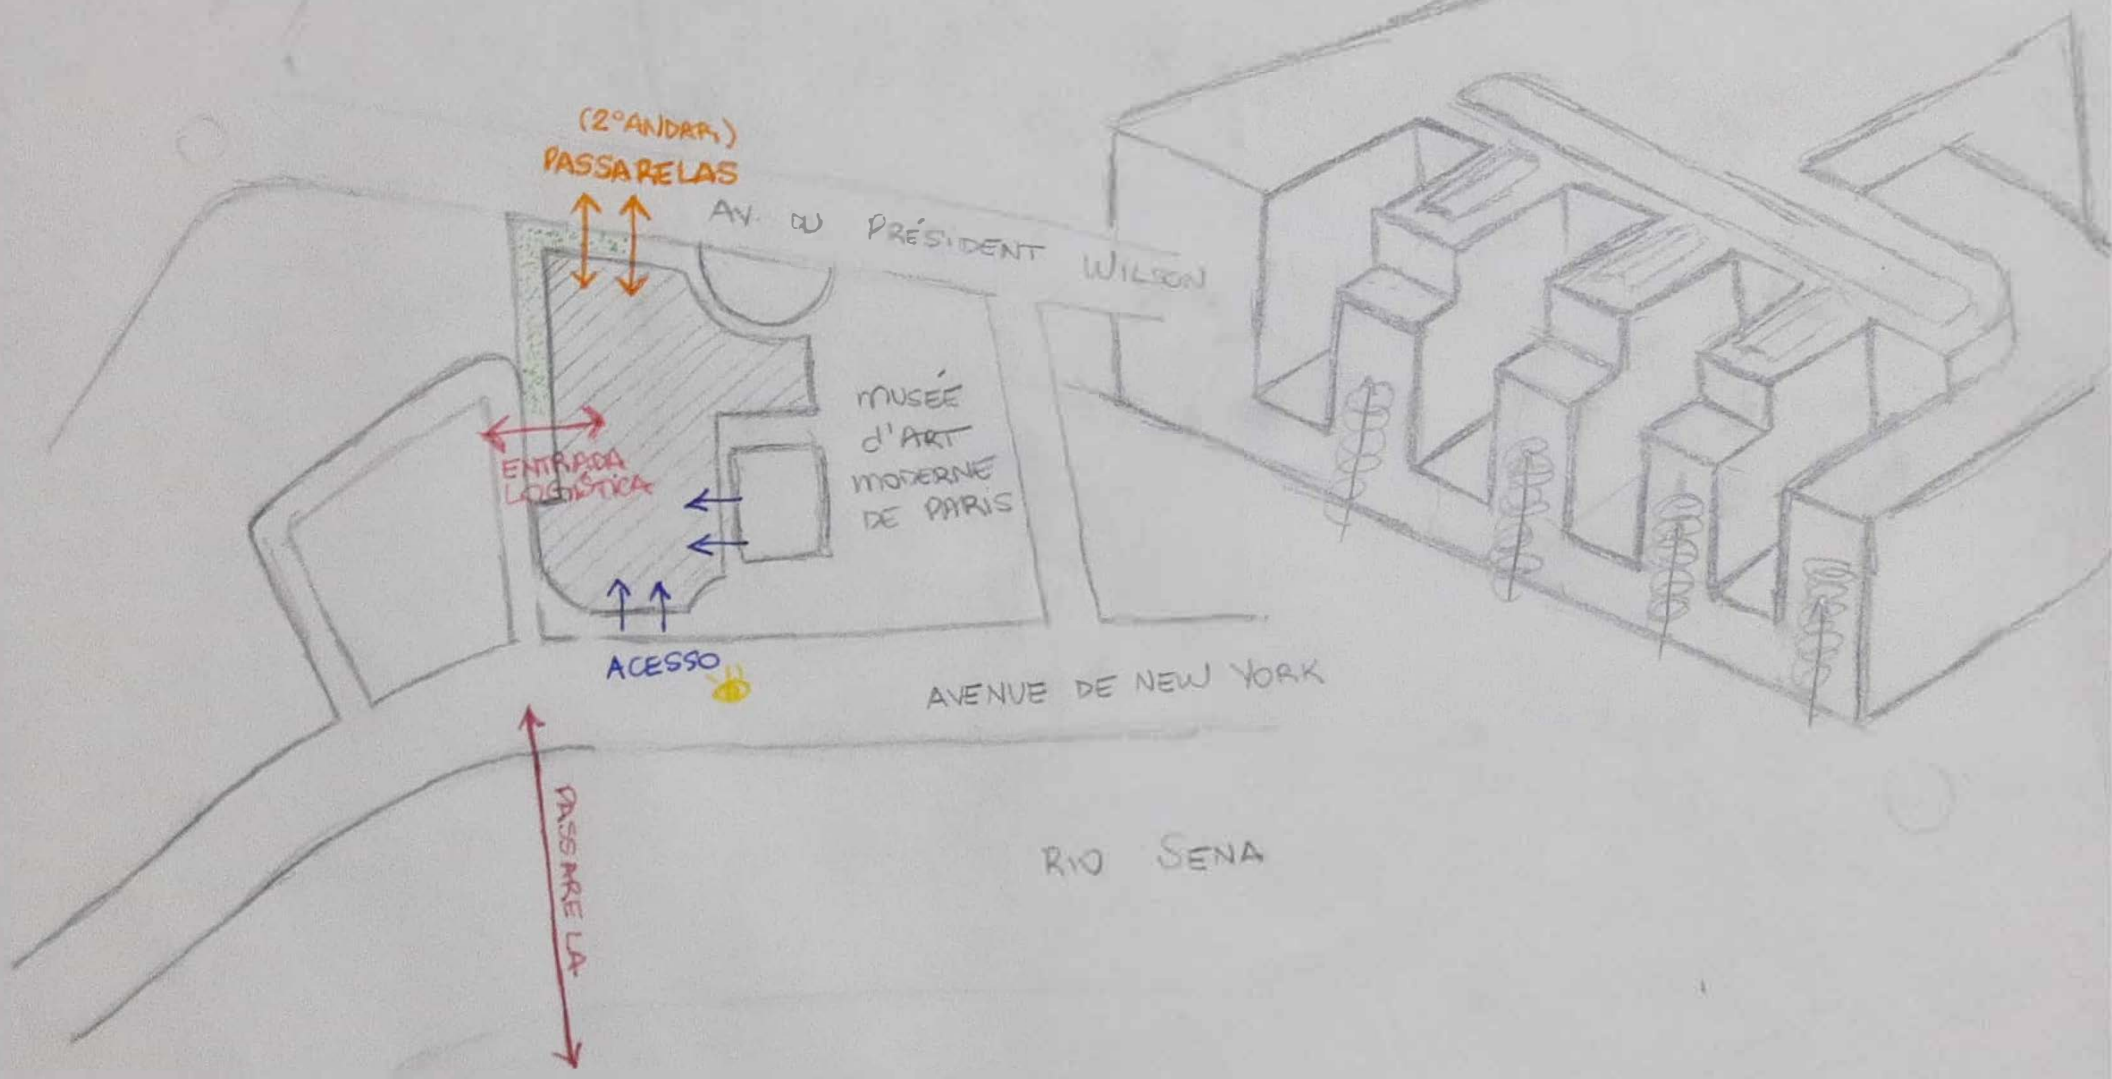 (2º ANDAR)
PASSARELAS
AV. DU PRÉSIDENT WILSON
MUSÉE
d'ART
MODERNE
DE PARIS
ENTRADA
LOGÍSTICA
ACESSO
AVENUE DE NEW YORK
PASSARELA
RIO SENA